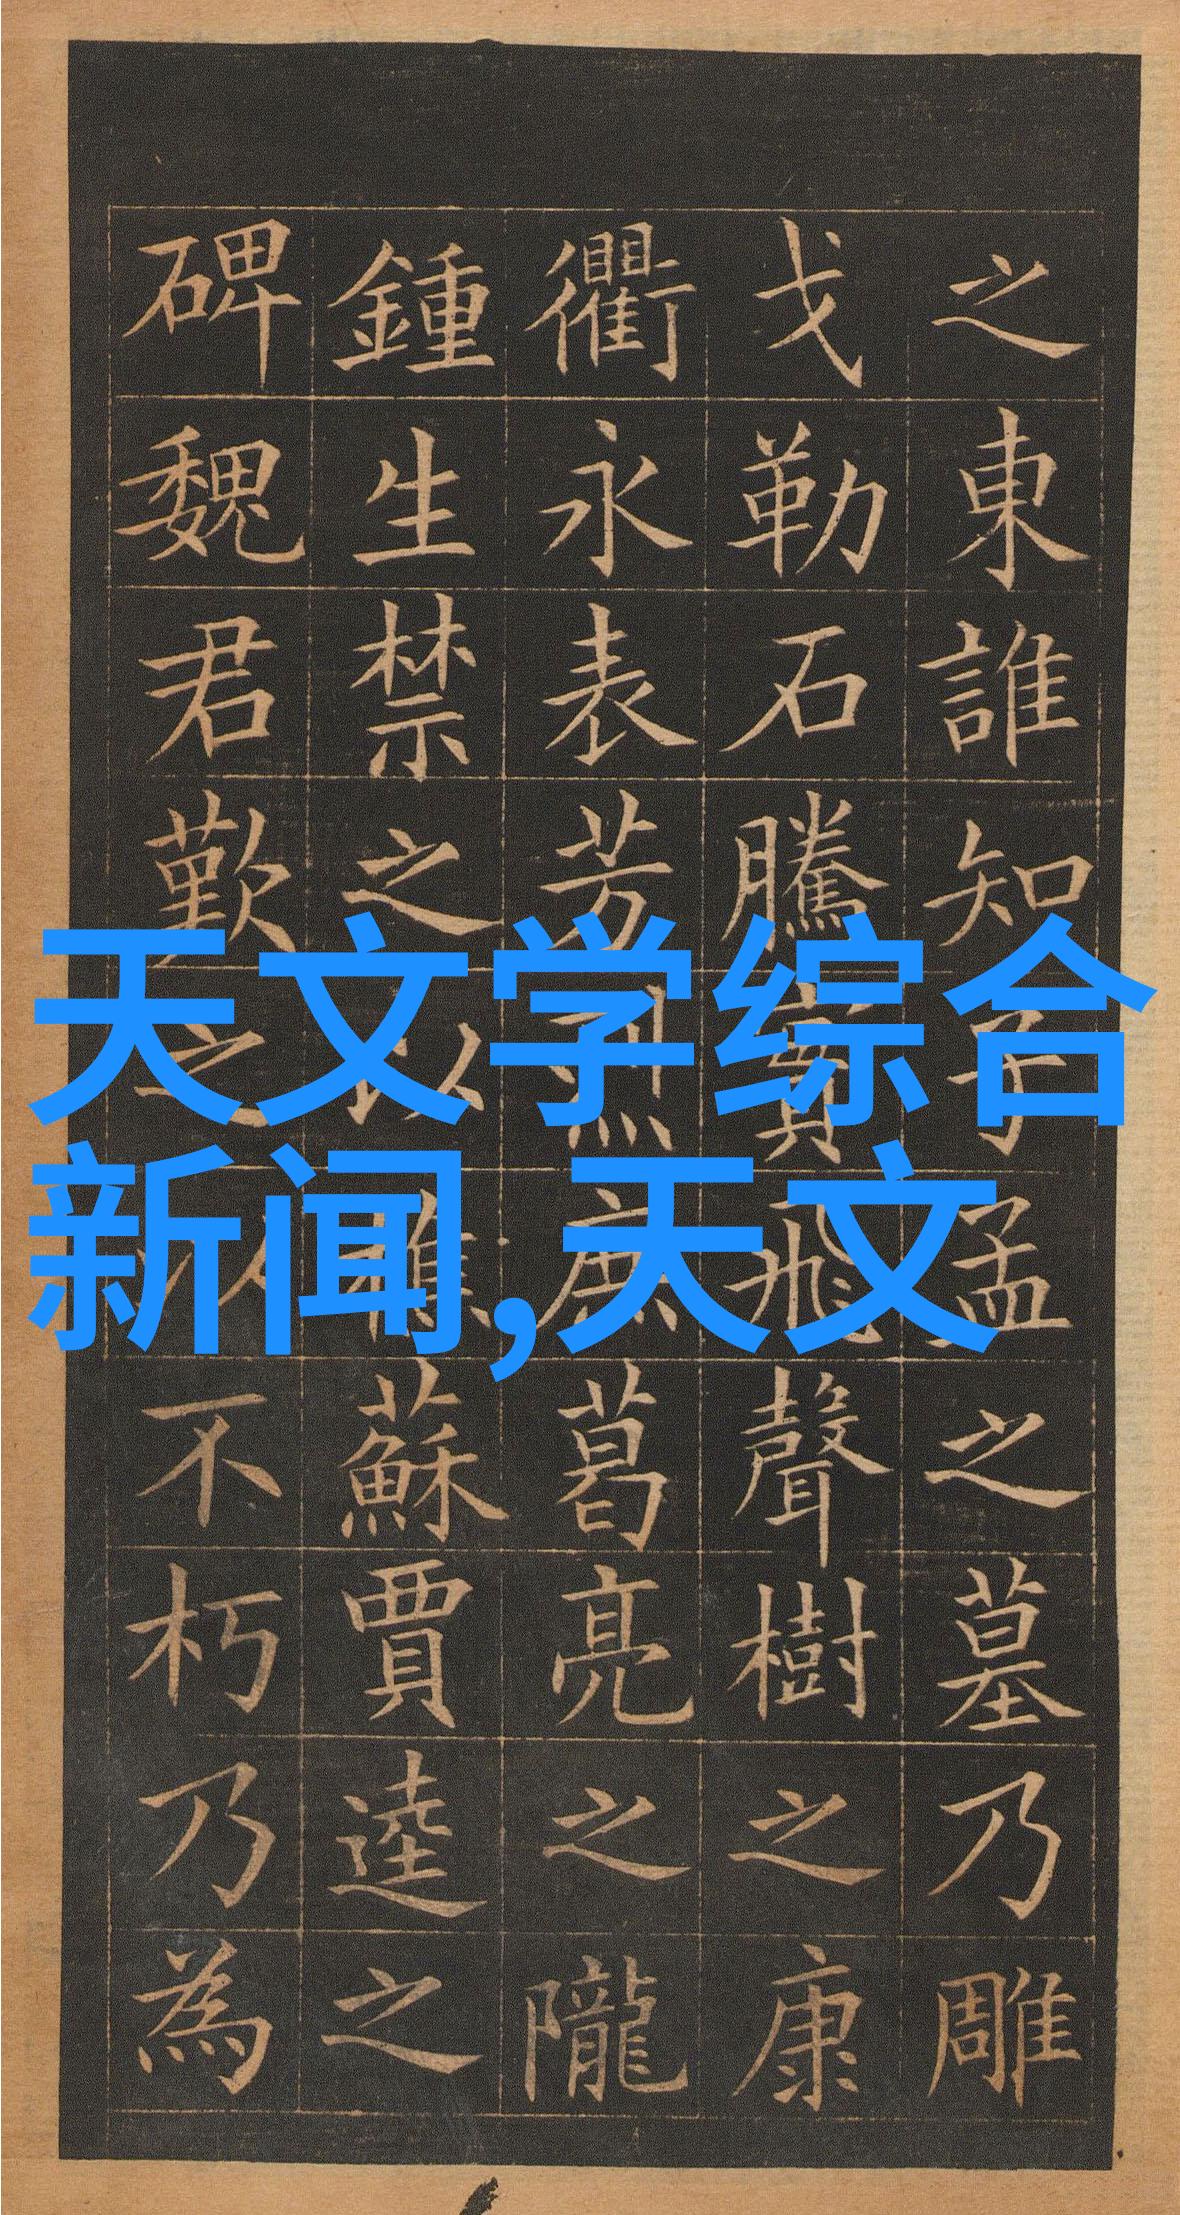 之東誰知子孟之墓乃雕
戈勒石騰實飛聲樹之康
衢永表芳烈庶葛亮之隴
鍾生禁之以樵蘇賈逵之
碑魏君歎之以不朽乃為
天文学综合
新闻,天文